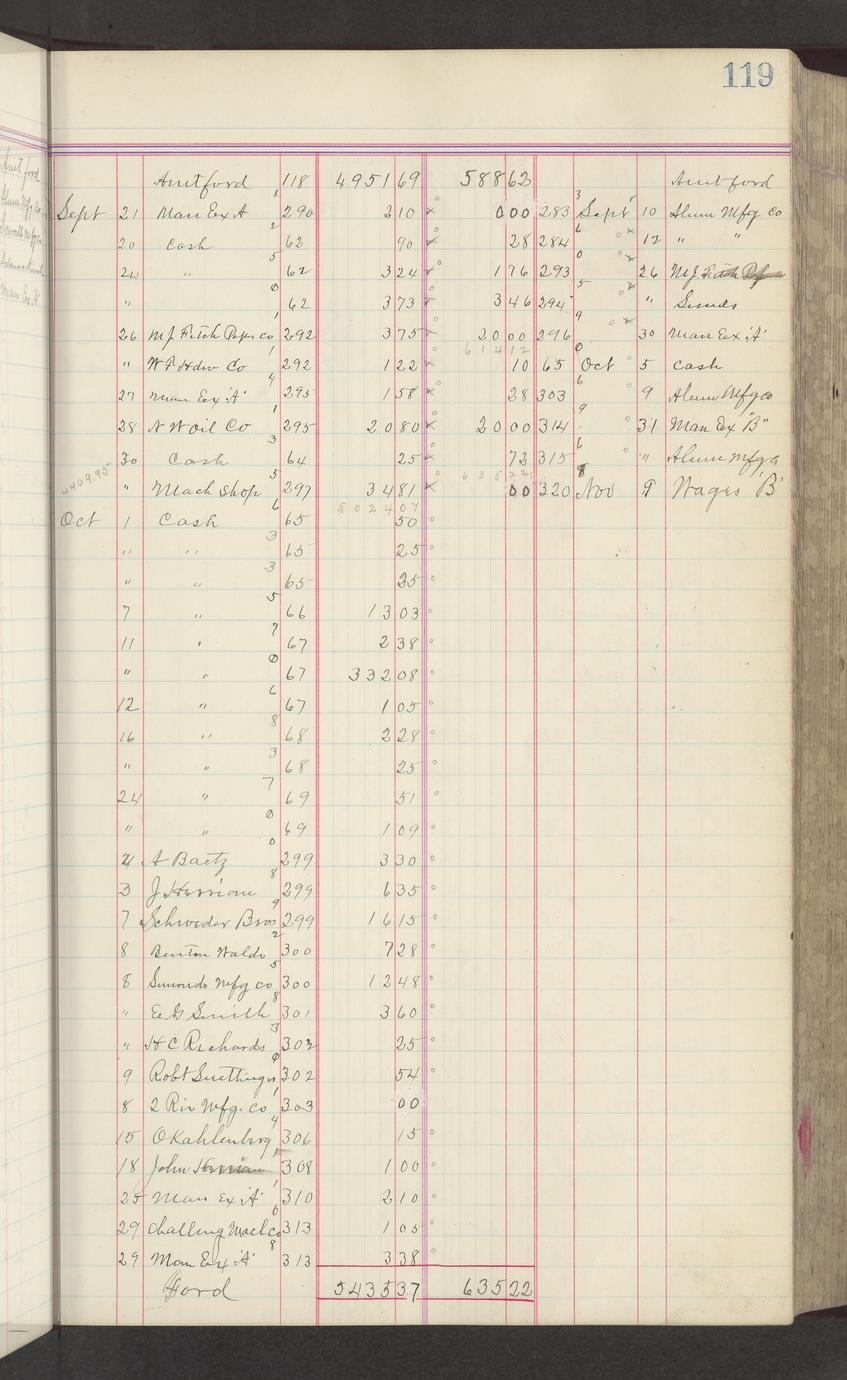 119
Amt ford 118 4951 69 588 62 Amt ford
Sept 21 Man Ex A 290 2 10 0 00 283 Sept 10 Alum Mfg Co
20 Cash 62 90 28 284 12 " "
24 " 62 3 24 1 76 293 26 M J
" 62 3 73 3 46 294 " Sunds
26 M J Fitch Paper co 292 3 75 20 00 296 30 Man Ex 'A'
614 12
" W P Hdw Co 292 1 22 10 65 Oct 5 Cash
27 Man Ex 'A' 295 1 58 28 303 9 Alum Mfg co
28 N W Oil Co 295 20 80 20 00 314 31 Man Ex "B"
30 Cash 64 25 72 315 " Alum Mfg Co
4409.95 635 22
" Mach Shop 297 34 81 00 320 Nov 9 Wages 'B'
5024 07
Oct 1 Cash 65 50
" " 65 25
" " 65 25
7 " 66 13 03
11 " 67 2 38
" " 67 332 08
12 " 67 1 05
16 " 68 2 28
" " 68 25
24 " 69 51
" " 69 1 09
4 A Baetz 299 3 30
3 J 299 6 35
7 Schroeder Bros 299 16 15
8 Benton Waldo 300 7 28
8 Simonds Mfg co 300 12 48
" E G Smith 301 3 60
" H C Richards 302 25
9 Robt Suettinger 302 54
8 2 Riv Mfg. Co 303 00
15 O Kahlenberg 306 15
18 John 308 1 00
25 Man Ex 'A' 310 2 10
29 Challeng Mach Co 313 1 05
29 Man Ex 'A' 313 3 38
Ford 5435 37 635 22